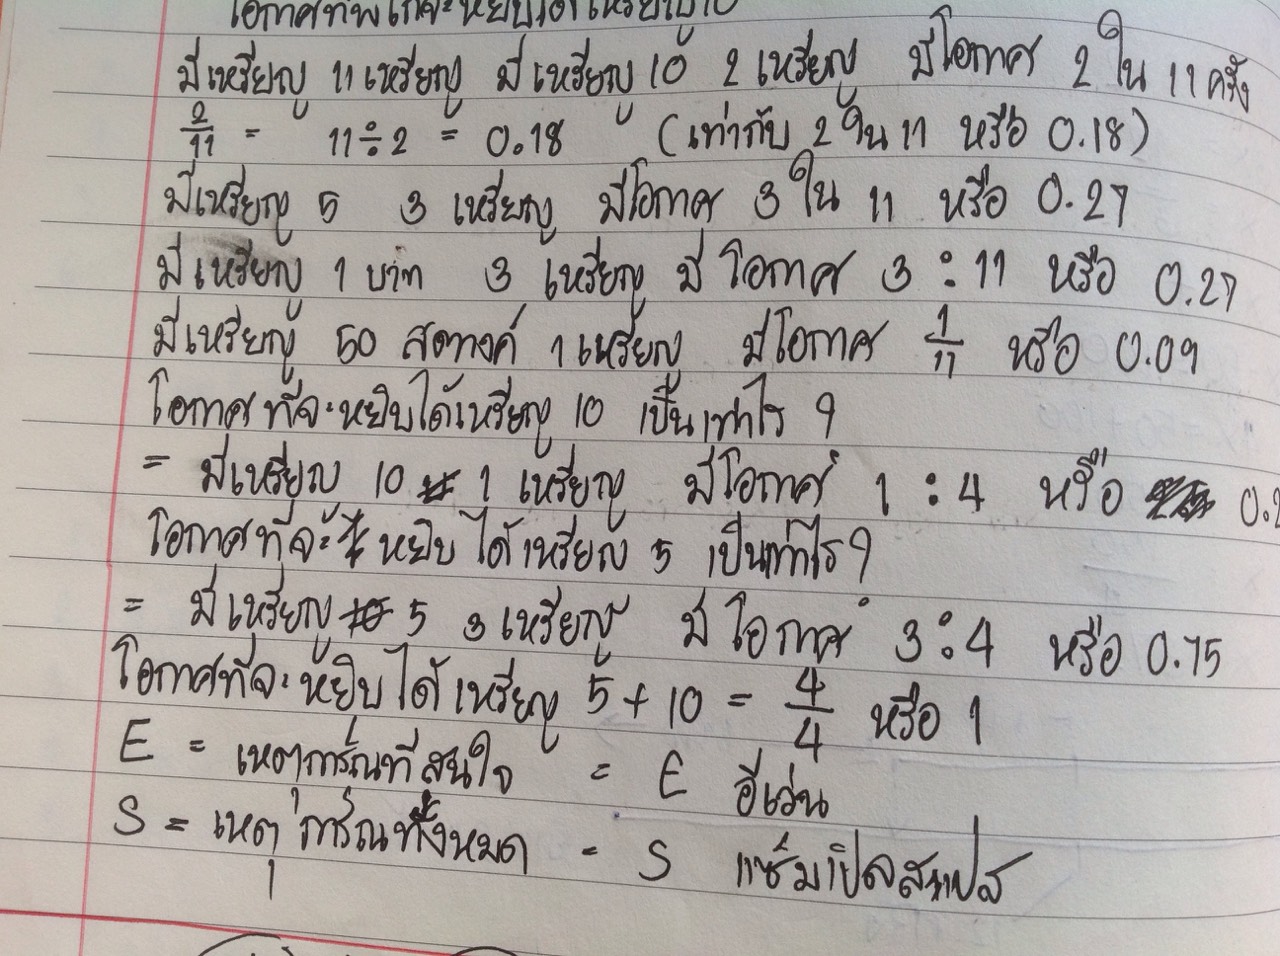 โอกาศที่
มีเหรียญ 11 เหรียญ มีเหรียญ 10 2 เหรียญ มีโอกาศ 2 ใน 11 ครั้ง
2/11 = 11÷2 = 0.18 (เท่ากับ 2 ใน 11 หรือ 0.18)
มีเหรียญ 5 3 เหรียญ มีโอกาศ 3 ใน 11 หรือ 0.27
มีเหรียญ 1 บาท 3 เหรียญ มีโอกาศ 3 : 11 หรือ 0.27
มีเหรียญ 50 สตางค์ 1 เหรียญ มีโอกาศ 1/11 หรือ 0.09
โอกาศที่จะหยิบได้เหรียญ 10 เป็นเท่าไร ?
= มีเหรียญ 10 1 เหรียญ มีโอกาศ 1 : 4 หรือ 0.2
โอกาศที่จะหยิบได้เหรียญ 5 เป็นเท่าไร ?
= มีเหรียญ 5 3 เหรียญ มีโอกาศ 3 : 4 หรือ 0.75
โอกาศที่จะหยิบได้เหรียญ 5 + 10 = 4/4 หรือ 1
E = เหตุการ์ณที่สนใจ = E อีเว่น
S = เหตุการ์ณทั้งหมด = S แซ์มเปิลสเปส